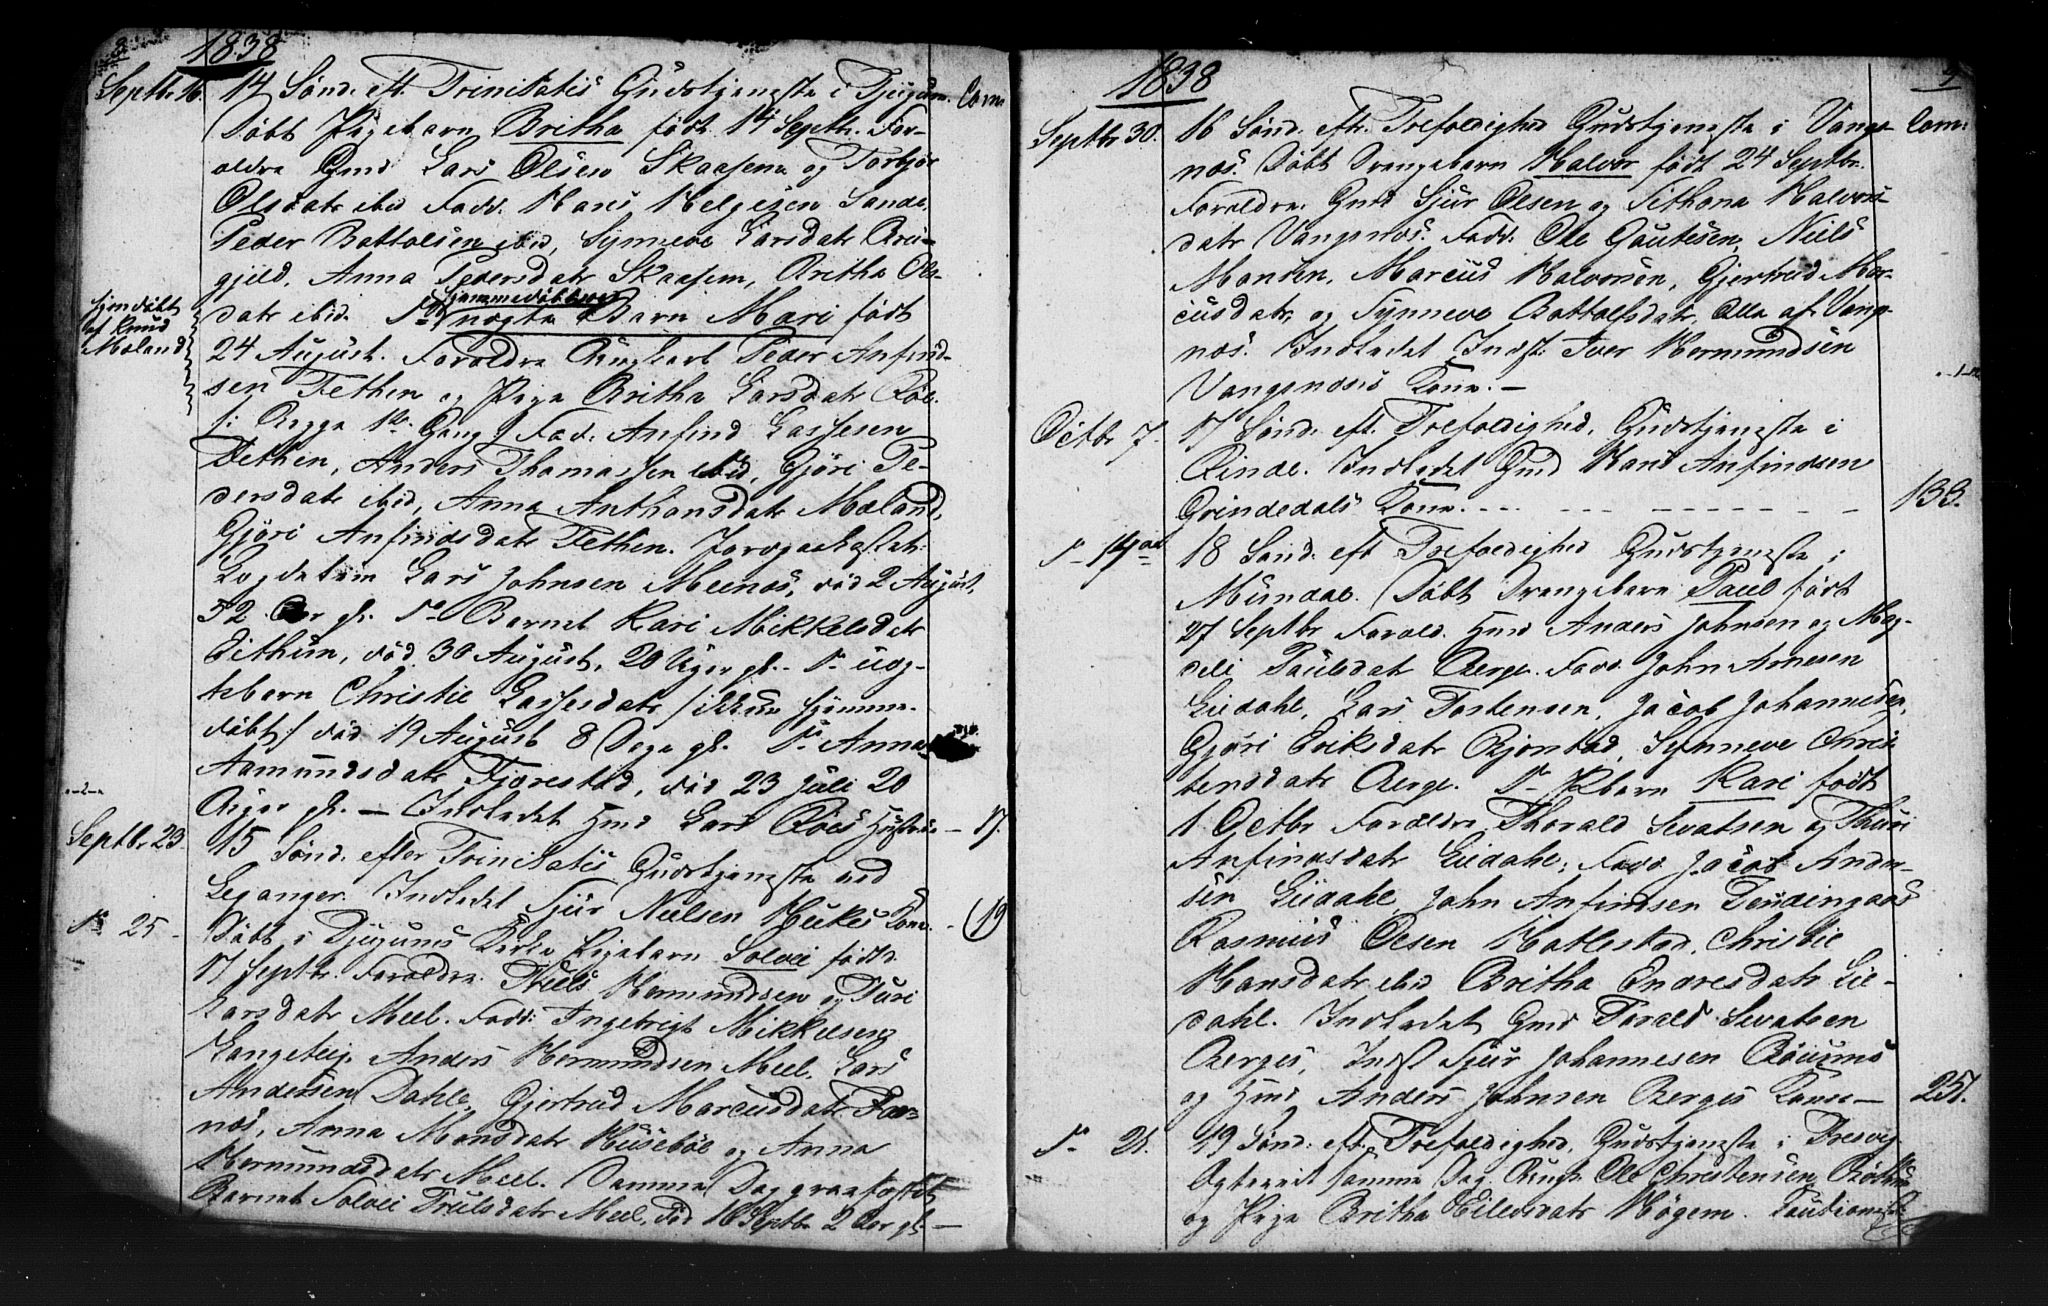 1838
Septbr 16. 14 Sønd. eft. Trinitatis Gudstjeneste i Tjugum. Com:
Døbt Pigebarn Britha født 14 Septbr. For-
ældre Gmd Lars Olsen Skaasem og Torbjør
Olsdatr ibid Fadd. Hans Helgesen Sande,
Peder Bottolsen ibid, Synneve Larsdatr Brei-
gjeld, Anna Pedersdatr Skaasem, Britha Ols-
datr ibid. Do hjemmedøbt uægte Barn Mari født
hjemdøbt
af Knud
Moland
24 August. Forældre Ungkarl Peder Anfind-
sen Fethen og Pige Britha Larsdatr Røe.
/: Begge 1te Gang :/ Fad. Anfind Lassesen
Fethen, Anders Thomassen ibid, Gjøri Pe-
dersdatr ibid, Anna Anthonsdatr Moland,
Gjøri Anfindsdatr Fethen. Jordpaakastet:
Lars Johnsen Meenes, død 2 August,
52 Aar gl. Do Barnet Kari Mikkelsdatr
Eithun, død 30 August, 20 Uger gl. Do uæg-
tebarn Christie Lassesdatr /: hjemme-
døbt :/ død 19 August 8 Dage gl. Do Anna
Aamundsdatr Fjærestad, død 23 Juli 20
Uger gl. — Indledet Gmd Lars Røes Hustrue — 17.
Septbr 23. 15 Sønd. efter Trinitatis Gudstjeneste ved
Leganger. Indledet Sjur Nielsen Hukes Kone. - 19
Do 25 - Døbt i Tjugums Kirke Pigebarn Solvei født
17 Septbr. Forældre Truls Hermundsen og Turi
Larsdatr Meel. Fadd: Ingebrigt Mikkelsen
Langeteig, Anders Hermundsen Meel, Lars
Andersen Dahle, Gjertrud Marcusdatr Fær-
nes, Anna Monsdatr Husebøe og Anna
Hermundsdatr Meel. Samme Dag jordfæstet
Barnet Solvei Trulsdatr Meel, død 16 Septbr 2 Aar gl —
1838
Septbr 30. 16 Sønd. eft. Trefoldighed Gudstjeneste i Vangs- Com:
næs. Døbt Drengebarn Halvor født 24 Septbr.
Forældre Gmd Sjur Olsen og Halvors-
datr Vangsnæs. Fadd. Ole Gautesen, Niels
Monsen, Marcus Halvorsen, Gjertrud Mar-
cusdatr, og Synneve Bottolfsdatr, Alle af Vangs-
næs. Indledet Indst. Iver Hermundsen
Vangsnæsis Kone. —
Octbr 7. 17 Sønd. eft. Trefoldighed. Gudstjeneste i
Rinde. Indledet Gmd Hans Anfindsen
Grindedals Kone. - - - 133.
Do 14de 18 Sønd. eft Trefoldighed Gudstjeneste i
Mundal. Døbt Drengebarn Paul født
27 Septbr Foræld. Gmd Anders Johnsen og Mag-
deli Paulsdat Berge. Fadd. John Arnesen
Liedahl, Lars Torstensen, Jacob Johannesen,
Gjøri Eriksdatr Bjønstad, Synneve Chris-
tensdatr Berge. Do Pbarn Kari født
1 Octbr Forældre Thorald Sevatsen og Thuri
Anfindsdatr Liedahl; Fadd Jacob Ander-
sen Liedahl, John Anfindsen
Rasmus Olsen Hatlestad, Christie
Hansdatr ibid Britha Endresdatr Lie-
dahl. Indledet Gmd Torald Sevatsen
Berges, Indst Sjur Johannesen
og Gmd Anders Johnsen Berges Koner — 251.
Do 21. 19 Sønd. eft. Trefoldighed. Gudstjeneste i Fresvig.
samme Dag Ungk Ole Christensen
og Pige Britha Eilevsdatr Høgem.